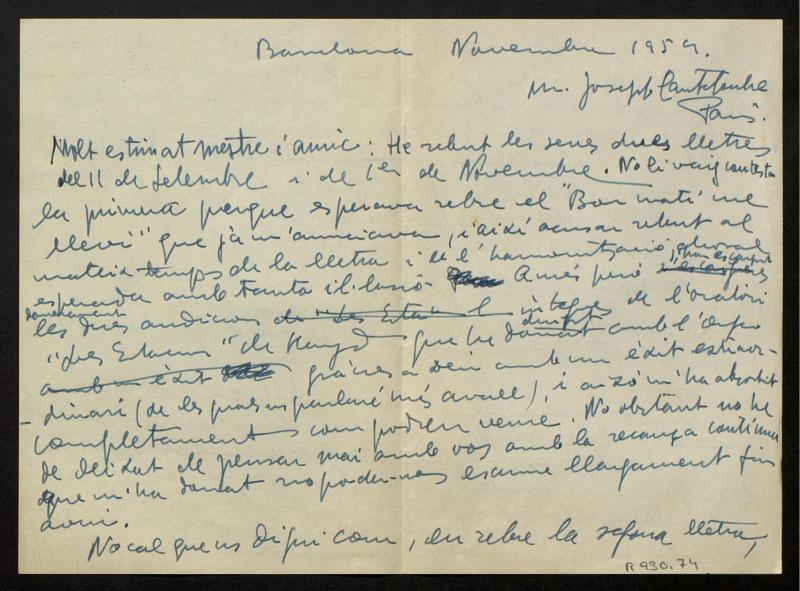 Barcelona Novembre 1954.
M. Joseph Canteloube
Paris.
Molt estimat mestre i amic: He rebut les seves dues lletres
del 11 de Setembre i de 1er de Novembre. No li vaig contestar
la primera perque esperava rebre el "Bon matí me
llevi" que ja m'anunciava, i així acusar rebut al
mateix temps de la lletra i de l'harmonització coral
esperada amb tanta il·lusió. A més però
darrerament
les dues audicions de "Les Estacions" integres de l'oratori
"Les Estacions" de Haydn que he donat dirigit amb l'Orfeo
amb èxit gràcies a Deu amb un éxit extraor-
dinari (de les quals us parlaré més avall), i aixó m'ha absorbit
completament com podreu veure. No obstant no he
deixat de pensar mai amb vos amb la recança continua
que m'ha donat no poder-vos escriure llargament fins
avui.
No cal que us digui com, en rebre la segona lletra,
R 930.74